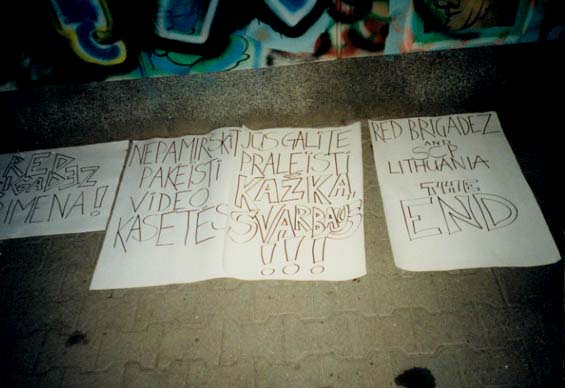 RED
IMENA!
NEPAMIRŠKIT
PAKEISTI
VIDEO
KASETES
JŪS GALITE
PRALEISTI
KAŽKĄ
SVARBAUS
!!!
RED BRIGADEZ
AND
LITHUANIA
THE
END